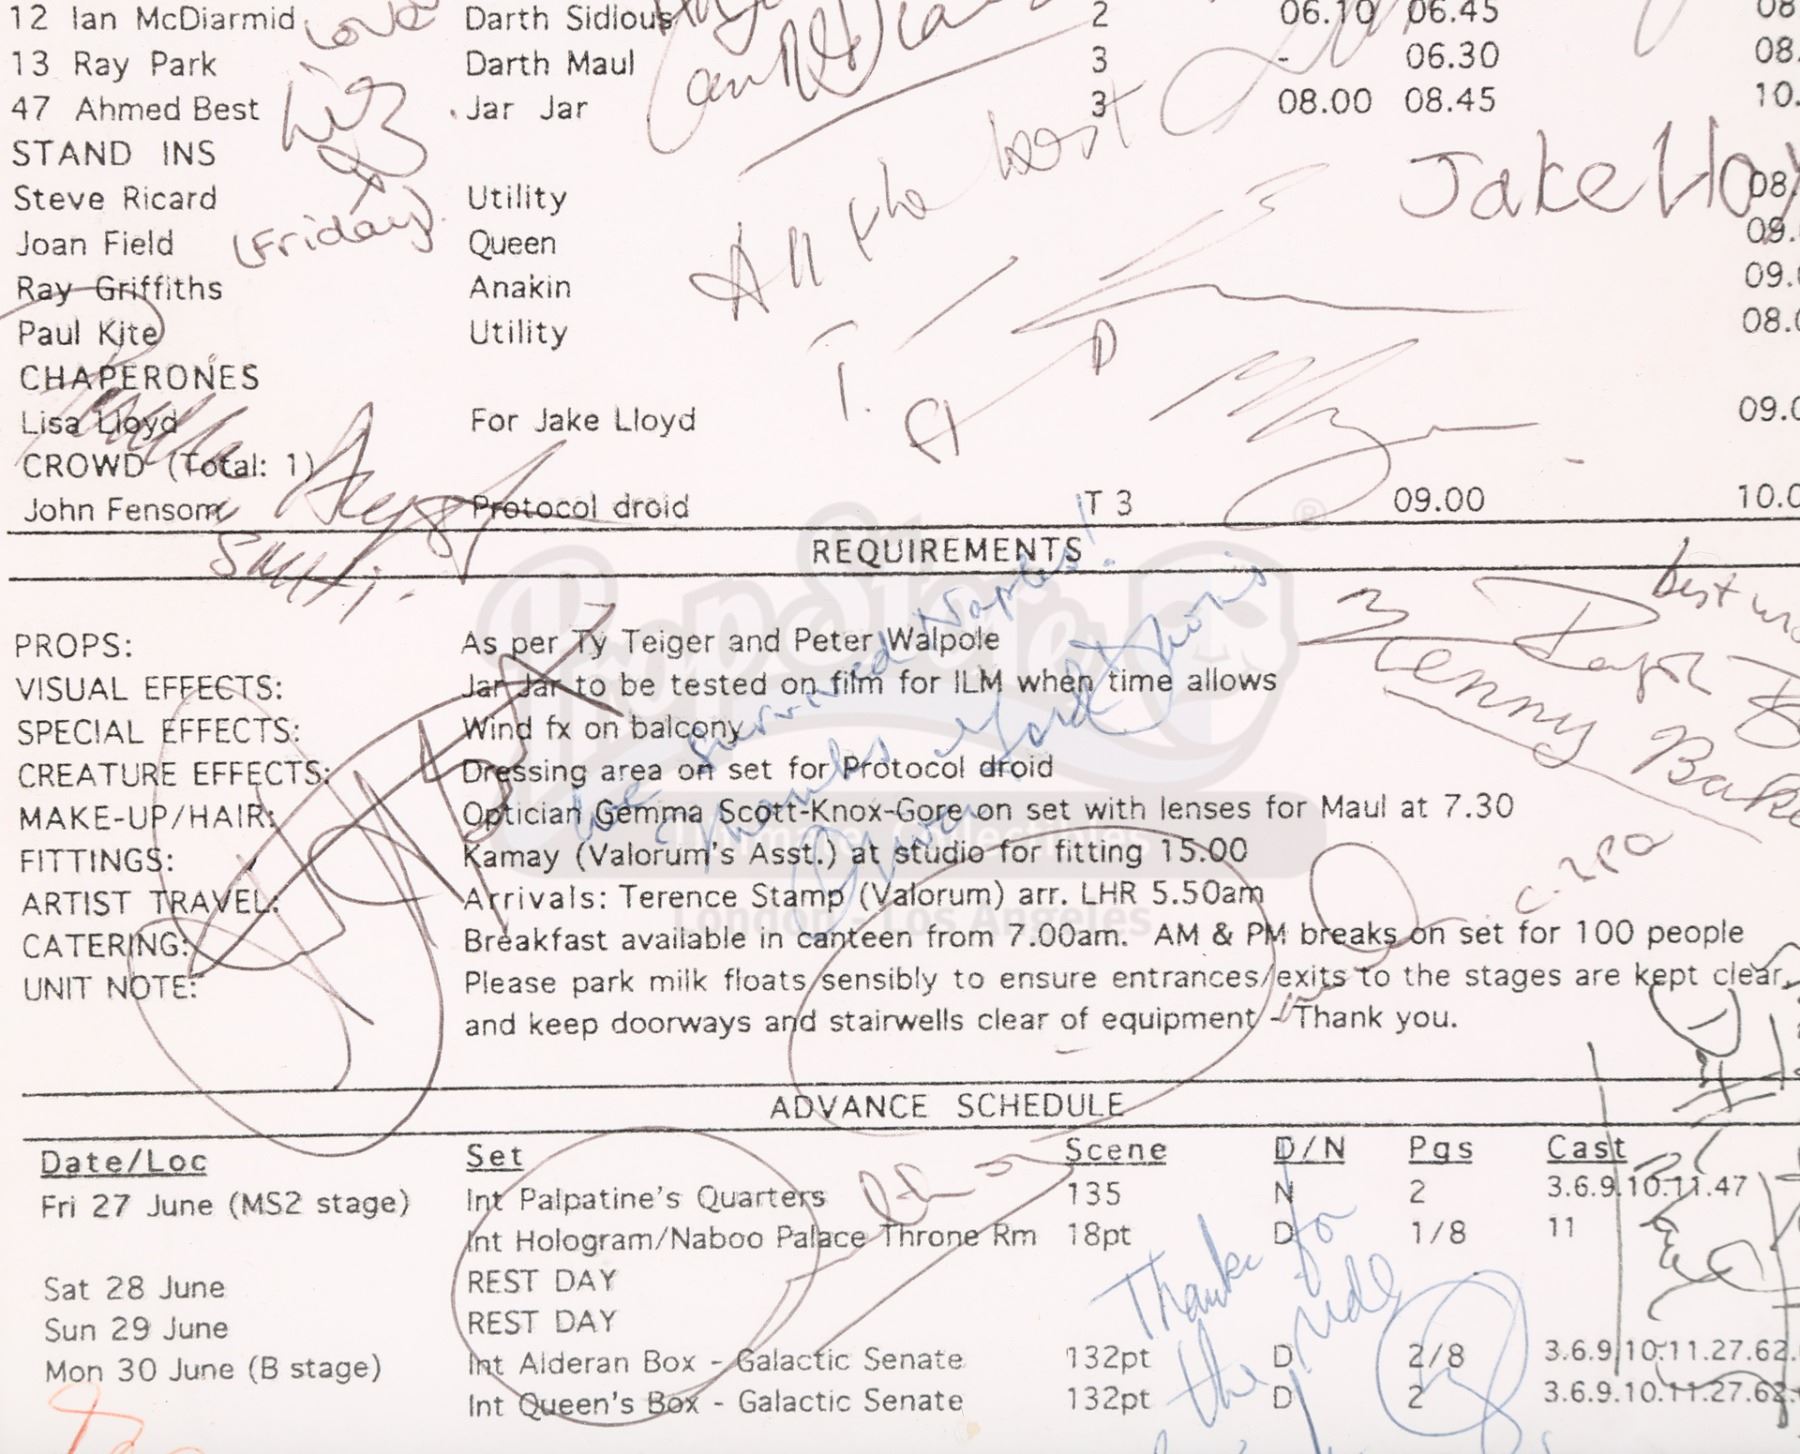 12 Ian McDiarmid Darth Sidious 2 06.10 06.45 08
13 Ray Park Darth Maul 3 - 06.30 08.
47 Ahmed Best Jar Jar 3 08.00 08.45 10.
Love
Liz
(Friday)
All the best
Jake Lloy
STAND INS
Steve Ricard Utility 08.
Joan Field Queen 09.
Ray Griffiths Anakin 09.
Paul Kite Utility 08.0
CHAPERONES
Lisa Lloyd For Jake Lloyd 09.0
CROWD (Total: 1)
John Fensom Protocol droid T 3 09.00 10.0
REQUIREMENTS
best
Kenny Bake
We survived Naples!
Thanks
PROPS: As per Ty Teiger and Peter Walpole
VISUAL EFFECTS: Jar Jar to be tested on film for ILM when time allows
SPECIAL EFFECTS: Wind fx on balcony
CREATURE EFFECTS: Dressing area on set for Protocol droid
MAKE-UP/HAIR: Optician Gemma Scott-Knox-Gore on set with lenses for Maul at 7.30
FITTINGS: Kamay (Valorum's Asst.) at studio for fitting 15.00
ARTIST TRAVEL: Arrivals: Terence Stamp (Valorum) arr. LHR 5.50am
CATERING: Breakfast available in canteen from 7.00am. AM & PM breaks on set for 100 people
UNIT NOTE: Please park milk floats sensibly to ensure entrances/exits to the stages are kept clear,
and keep doorways and stairwells clear of equipment - Thank you.
PropStore®
Ultimate Collectibles
London - Los Angeles
ADVANCE SCHEDULE
Date/Loc Set Scene D/N Pgs Cast
Fri 27 June (MS2 stage) Int Palpatine's Quarters 135 N 2 3.6.9.10.11.47
Int Hologram/Naboo Palace Throne Rm 18pt D 1/8 11
Sat 28 June REST DAY
Sun 29 June REST DAY
Mon 30 June (B stage) Int Alderan Box - Galactic Senate 132pt D 2/8 3.6.9.10.11.27.62.
Int Queen's Box - Galactic Senate 132pt D 2 3.6.9.10.11.27.62
Thanks for
the ride